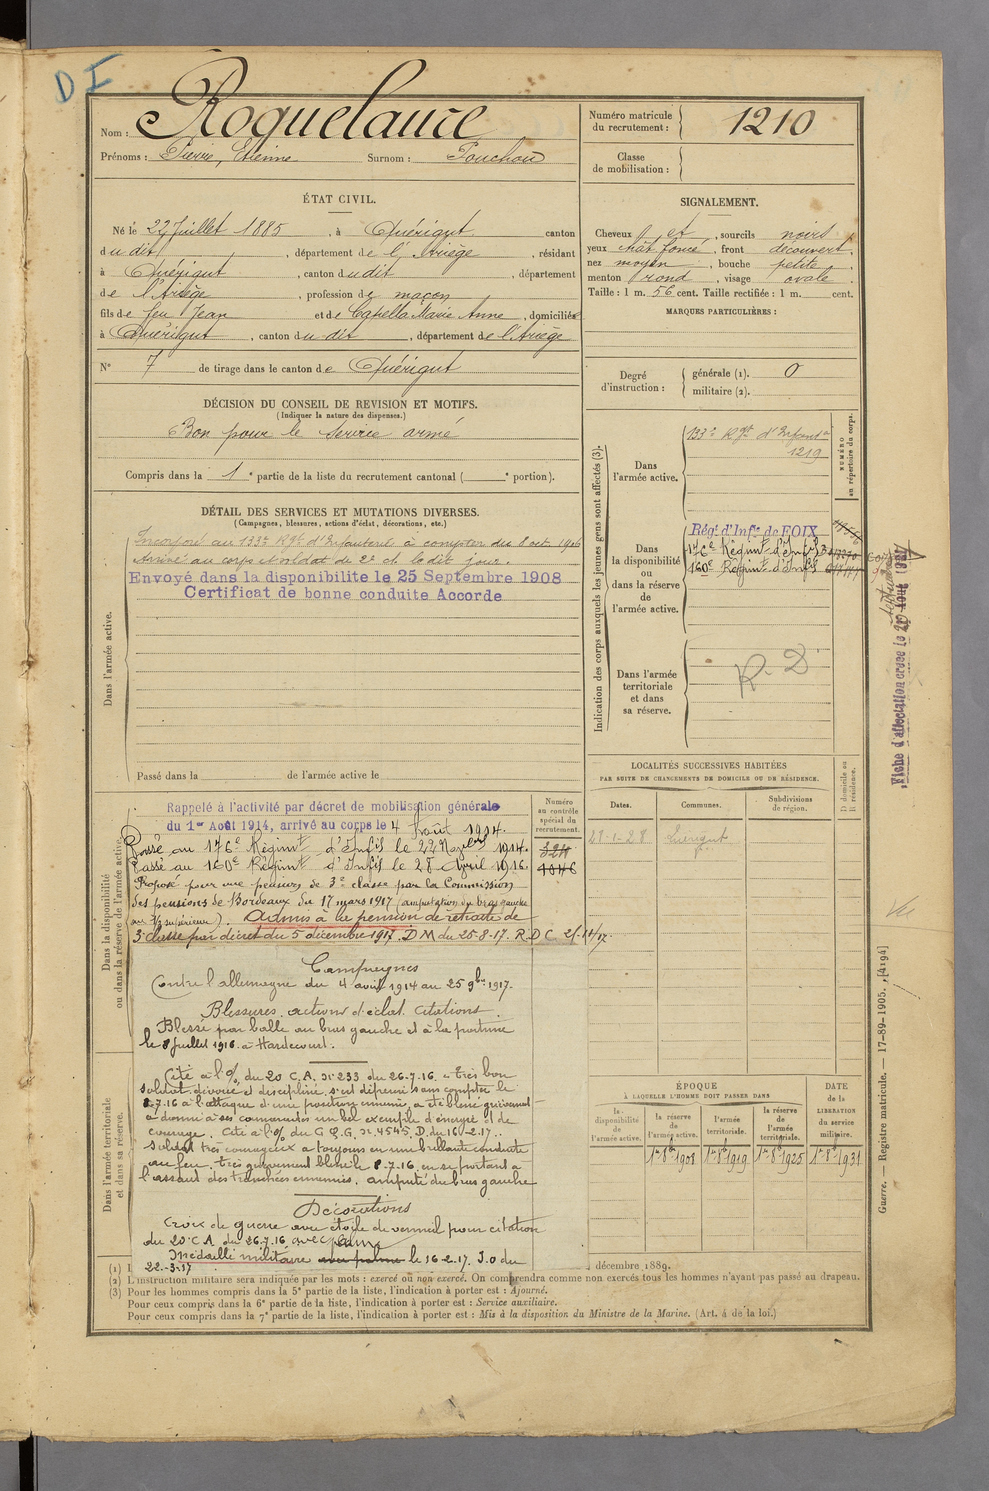 D I
Nom : Roquelaure
Prénoms : Pierre, Etienne Surnom : Pouchou
Numéro matricule du recrutement : 1210
Classe de mobilisation :
ÉTAT CIVIL.
Né le 27 Juillet 1885, à Quérigut canton
du dit, département de l'Ariège, résidant
à Quérigut, canton du dit, département
de l'Ariège, profession de maçon
fils de feu Jean et de Capella Marie Anne, domiciliés
à Quérigut, canton du dit, département de l'Ariège
N° 7 de tirage dans le canton de Quérigut
SIGNALEMENT.
Cheveux et, sourcils noirs
yeux chât foncé, front découvert,
nez moyen, bouche petite,
menton rond, visage ovale.
Taille : 1 m. 56 cent. Taille rectifiée : 1 m. cent.
MARQUES PARTICULIÈRES :
Degré d'instruction : générale (1). 0
militaire (2).
DÉCISION DU CONSEIL DE REVISION ET MOTIFS.
(Indiquer la nature des dispenses.)
Bon pour le service armé
Compris dans la 1e partie de la liste du recrutement cantonal ( e portion).
DÉTAIL DES SERVICES ET MUTATIONS DIVERSES.
(Campagnes, blessures, actions d'éclat, décorations, etc.)
Dans l'armée active.
Incorporé au 133e Rgt d'Infanterie à compter du 8 oct 1906
Arrivé au corps et soldat de 2e cl. le dit jour.
Envoyé dans la disponibilite le 25 Septembre 1908
Certificat de bonne conduite Accorde
Passé dans la de l'armée active le
Indication des corps auxquels les jeunes gens sont affectés (3).
NUMÉRO au répertoire du corps.
Dans l'armée active.
133e Rgt d'Infant
1219
Dans la disponibilité ou dans la réserve de l'armée active.
Régt d'Infie de FOIX
176e Régimt d'Infie
160e Régimt d'Infie
Dans l'armée territoriale et dans sa réserve.
R. D
Fiche d'affectation créée le
LOCALITÉS SUCCESSIVES HABITÉES
PAR SUITE DE CHANGEMENTS DE DOMICILE OU DE RÉSIDENCE.
Dates.
Communes.
Subdivisions de région.
D domicile ou R résidence.
21-1-28 Quérigut
Dans la disponibilité ou dans la réserve de l'armée active.
Numéro au contrôle spécial du recrutement.
Rappelé à l'activité par décret de mobilisation générale
du 1er Août 1914, arrivé au corps le 4 Août 1914.
Passé au 176e Régimt d'Infie le 22 1914.
Passé au 160e Régimt d'Infie le 28 Avril 1916.
324
1046
Proposé pour une pension de 3e classe par la Commission
des pensions de Bordeaux du 17 mars 1917 (amputation du bras gauche
au 1/3 supérieur). Admis à la pension de retraite de
3e classe par décret du 5 décembre 1917. DM du 25-8-17. R.D.C.
Campagnes
Contre l'allemagne du 4 août 1914 au 25 9bre 1917.
Blessures, actions d'éclat, citations.
Blessé par balle au bras gauche et à la poitrine
le 8 Juillet 1916 à Hardecourt.
Cité à l'O/ du 20 C.A. n° 233 du 26-7-16. « très bon
soldat, dévoué et discipliné, s'est dépensé sans compter le
8-7-16 à l'attaque d'une position ennemie, a été blessé grièvement
a donné à ses camarades un bel exemple d'énergie et de
courage. Cité à l'O/ du G.Q.G. n° 4545 D. du 16-2-17.
Soldat très courageux a toujours eu une brillante conduite
au feu. très gravement blessé le 8-7-16 en se portant à
l'assaut des tranchées ennemies. amputé du bras gauche
Décorations
Croix de guerre avec étoile de vermeil pour citation
du 20 C.A. du 26-7-16 avec palme
Médaille militaire avec palme le 16-2-17. J.O du
22-3-17
Dans l'armée territoriale et dans sa réserve.
ÉPOQUE
À LAQUELLE L'HOMME DOIT PASSER DANS
DATE de la LIBERATION du service militaire.
la disponibilité de l'armée active.
la réserve de l'armée active.
l'armée territoriale.
la réserve de l'armée territoriale.
1er 8bre 1908
1er 8bre 1919
1er 8bre 1925
1er 8bre 1931
décembre 1889.
(2) L'instruction militaire sera indiquée par les mots : exercé ou non exercé. On comprendra comme non exercés tous les hommes n'ayant pas passé au drapeau.
(3) Pour les hommes compris dans la 5e partie de la liste, l'indication à porter est : Ajourné.
Pour ceux compris dans la 6e partie de la liste, l'indication à porter est : Service auxiliaire.
Pour ceux compris dans la 7e partie de la liste, l'indication à porter est : Mis à la disposition du Ministre de la Marine. (Art. 4 de la loi.)
Guerre. — Registre matricule. — 17-89-1905. [4194]